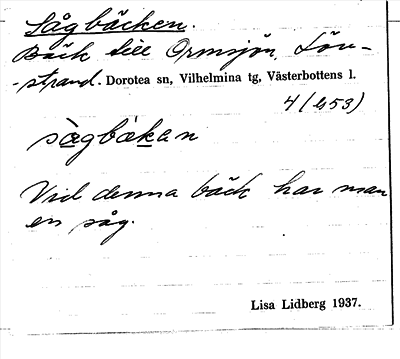 Sågbäcken.
Bäck till Ormsjön, Lön-
-strand. Dorotea sn, Vilhelmina tg, Västerbottens l.
4/(453)
sågbäkan
Vid denna bäck har man
en såg.
Lisa Lidberg 1937.